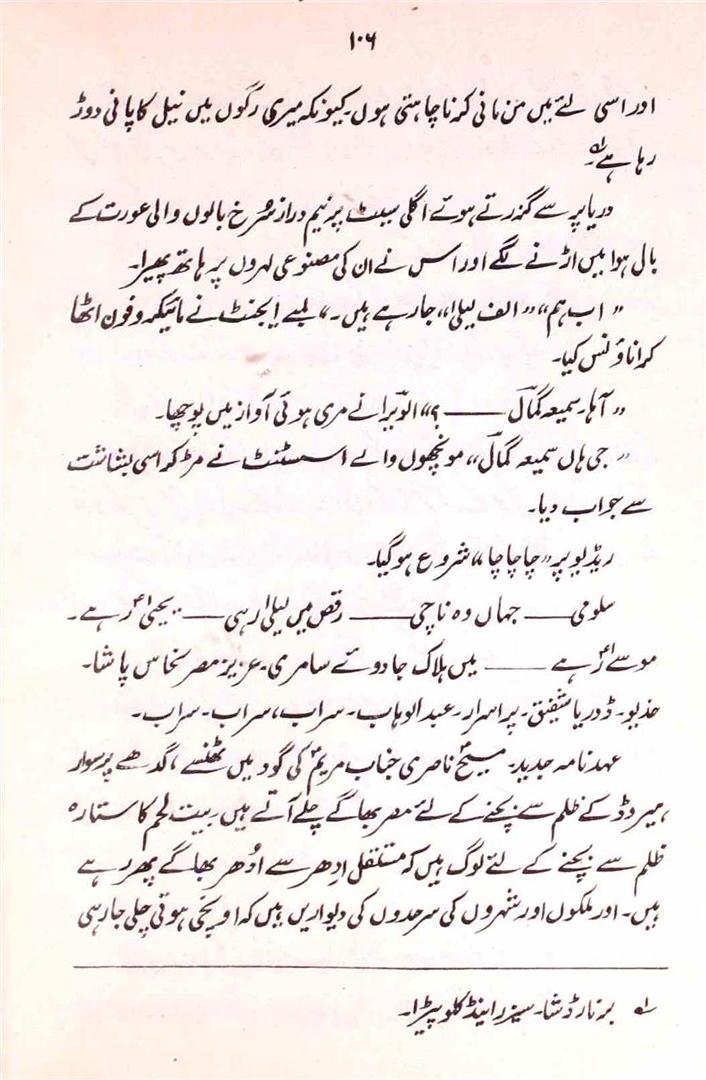 ۱۰۶
اور اسی لئے میں من مانی کرنا چاہتی ہوں۔ کیونکہ میری رگوں میں نیل کا پانی دوڑ
رہا ہے۔"؂۱
دریا پر سے گزرتے ہوئے اگلی سیٹ پر نیم دراز سُرخ بالوں والی عورت کے
بال ہوا میں اڑنے لگے اور اس نے ان کی مصنوعی لہروں پر ہاتھ پھیرا۔
"اب ہم" "الف لیلا" جا رہے ہیں۔" لمبے ایجنٹ نے مائیکروفون اٹھا
کر اناؤنس کیا۔
"آہا۔ سمیعہ گمال ــــــ ؟" الویرا نے مری ہوئی آواز میں پوچھا۔
"جی ہاں سمیعہ گمال" مونچھوں والے اسسٹنٹ نے مڑ کر اسی بشاشت
سے جواب دیا۔
ریڈیو پر "چا چا چا" شروع ہو گیا۔
سلومی ــــــ جہاں وہ ناچی ــــــ رقص میں لیلا رہی ــــــ یحییٰؑ رہے۔
موسےٰؑ رہے ــــــ میں ہلاک جادوئے سامری۔ عزیز مصر نحاس پاشا۔
خدیو۔ ڈدریا شفیق۔ پر اسرار۔ عبدالوہاب۔ سراب، سراب۔ سراب۔
عہد نامہ جدید۔ مسیحؑ ناصری جناب مریمؑ کی گود میں ٹھنسے، گدھے پر سوار
ہیروڈ کے ظلم سے بچنے کے لئے مصر بھاگے چلے آتے ہیں۔ بیت لحم کا ستارہ
ظلم سے بچنے کے لئے لوگ ہیں کہ مستقل اِدھر سے اُدھر بھاگے پھر رہے
ہیں۔ اور ملکوں اور شہروں کی سرحدوں کی دیواریں ہیں کہ اونچی ہوتی چلی جا رہی
؂۱ برنارڈ شا۔ سیزر اینڈ کلوپیڑا۔